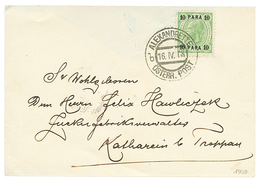 10 PARA 10
10 PARA 10
ALEXANDRETTE
16. IV. 08
ÖSTERR. POST
Sr Wohlgeboren
Dem Herrn Felix Hawliczek
Zuckerfabriksverwalter
Katharein b Troppau